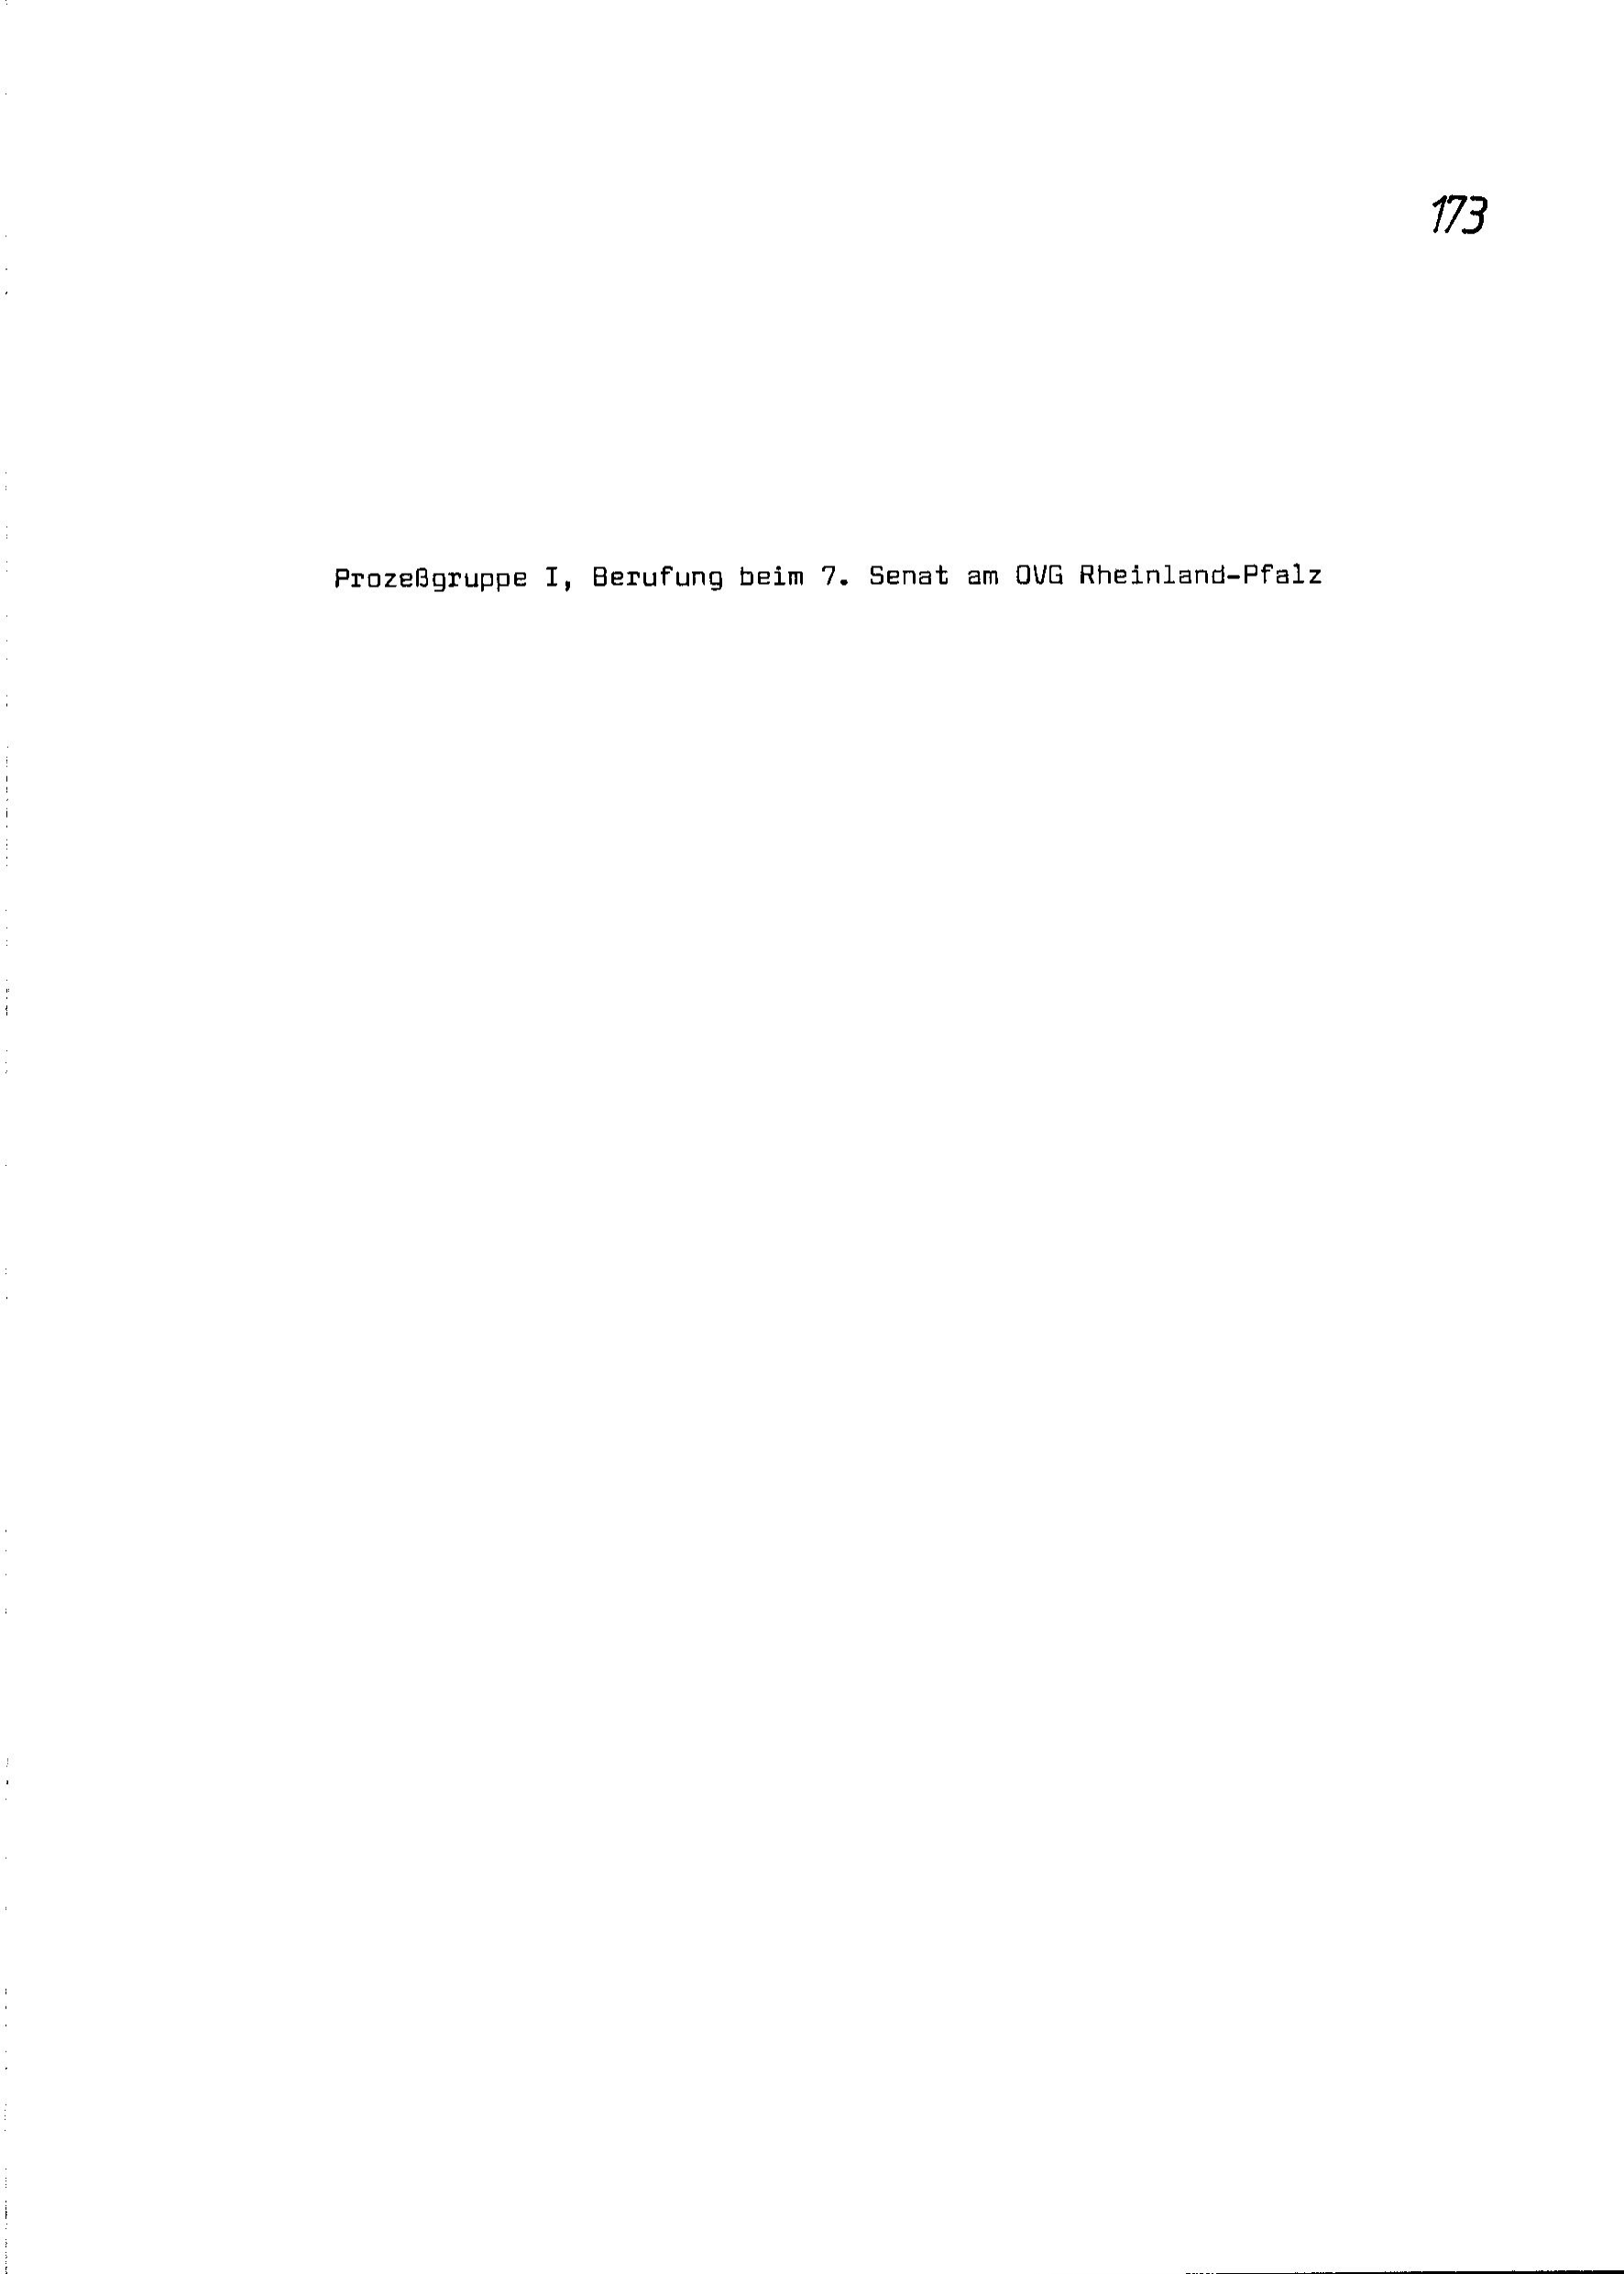 173
Prozeßgruppe I, Berufung beim 7. Senat am OVG Rheinland-Pfalz